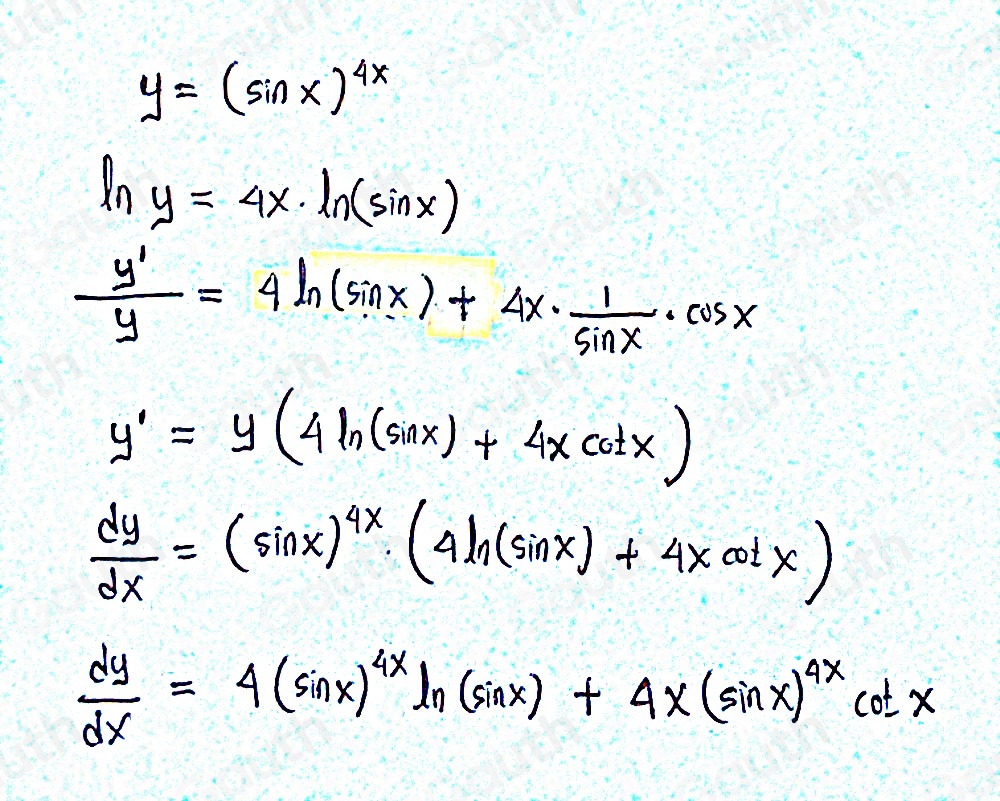 y = (sin x)^{4x}
ln y = 4x · ln(sin x)
y'/y = 4 ln(sin x) + 4x · 1/sin x · cos x
y' = y (4 ln(sin x) + 4x cot x)
dy/dx = (sin x)^{4x} · (4 ln(sin x) + 4x cot x)
dy/dx = 4 (sin x)^{4x} ln (sin x) + 4x (sin x)^{4x} cot x